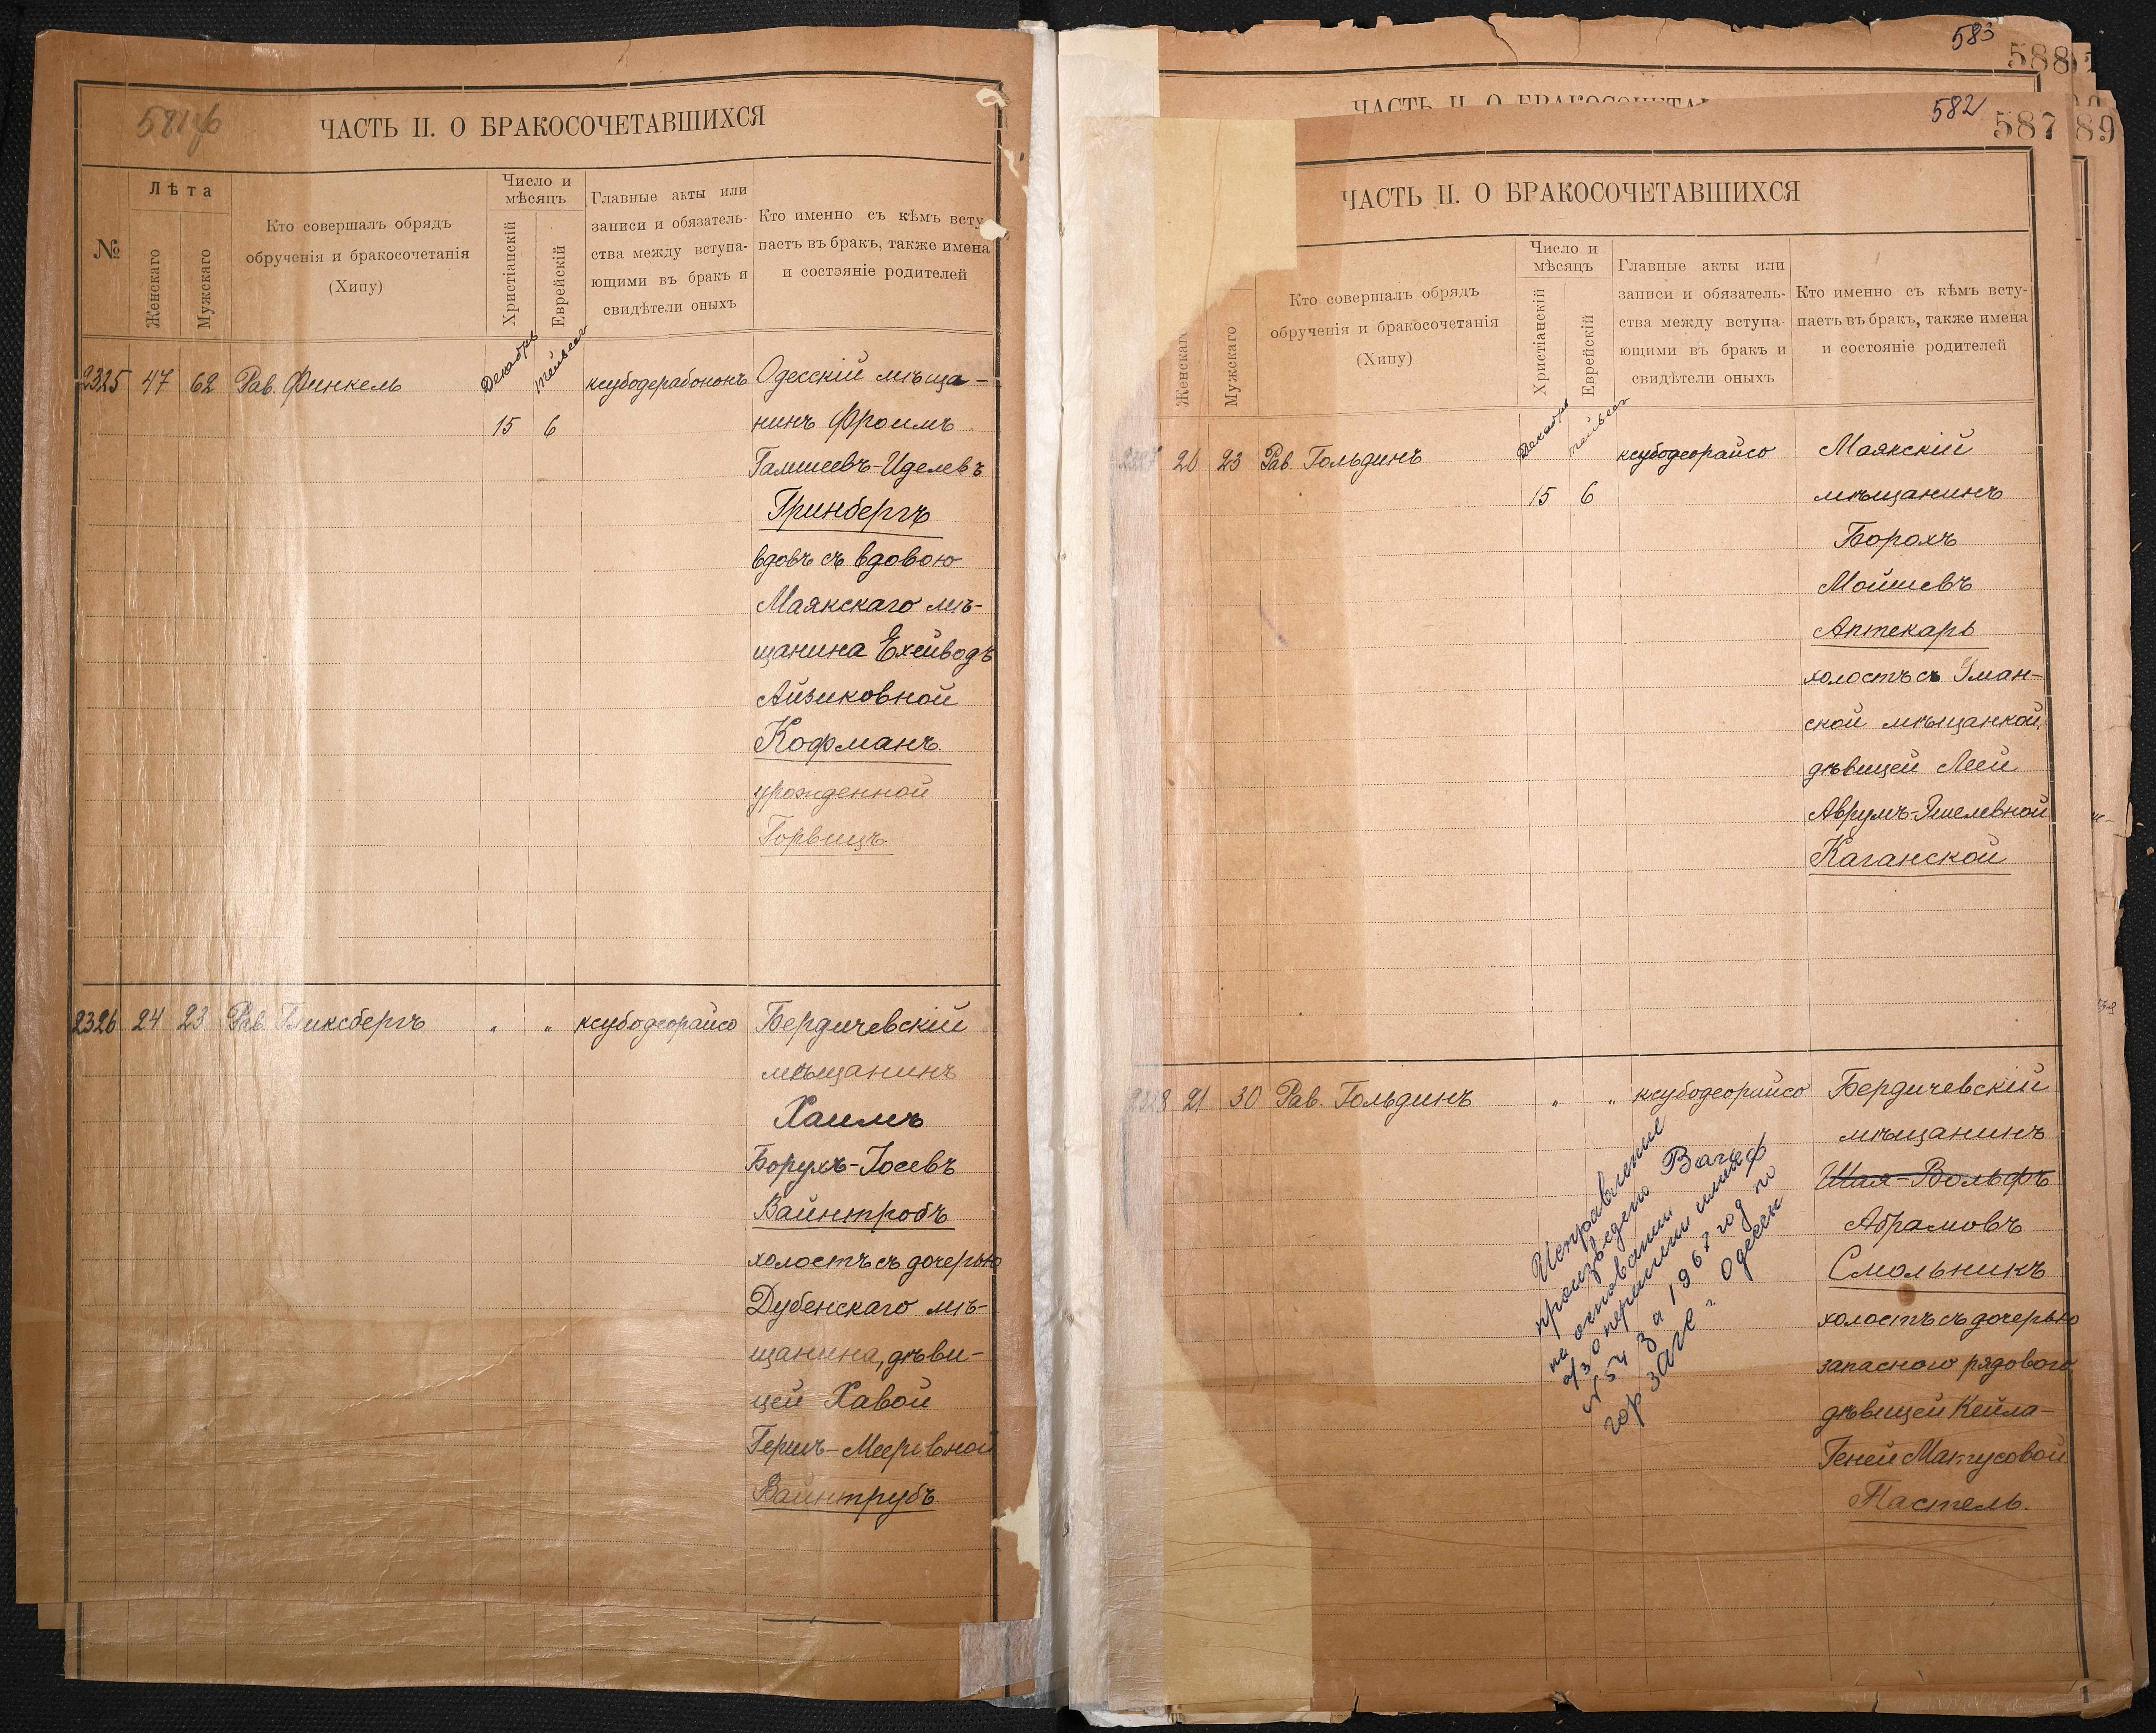 581об
ЧАСТЬ II. О БРАКОСОЧЕТАВШИХСЯ
№
Лѣта
Женскаго
Мужскаго
Кто совершалъ обрядъ
обрученія и бракосочетанія
(Хипу)
Число и
мѣсяцъ
Христіанскій
Еврейскій
Главные акты или
записи и обязатель-
ства между вступа-
ющими въ бракъ и
свидѣтели оныхъ
Кто именно съ кѣмъ всту
паетъ въ бракъ, также имена
и состэяніе родителей
2325 47 62 Рав. Финкель Декабрь Тейвесъ ксубодерабононъ Одесскій мѣща-
15 6 нинъ Фроимъ
Гамшеевъ-Иделевъ
Гринбергъ
вдовъ съ вдовою
Маякскаго мѣ-
щанина Ехейводъ
Айзиковной
Кофманъ
урожденной
Горвицъ
2326 24 23 Рав. Гликсбергъ " " ксубодеорайсо Бердичевскій
мѣщанинъ
Хаимъ
Борухъ-Іосевъ
Вайнтробъ
холостъ съ дочерью
Дубенскаго мѣ-
щанина, дѣви-
цей Хавой
Гершъ-Мееровной
Вайнтрубъ
583
588
ЧАСТЬ II. О БРАКОСОЧЕТАВ
582
587
89
ЧАСТЬ II. О БРАКОСОЧЕТАВШИХСЯ
Женскаго
Мужскаго
Кто совершалъ обрядъ
обрученія и бракосочетанія
(Хипу)
Число и
мѣсяцъ
Христіанскій
Еврейскій
Главные акты или
записи и обязатель-
ства между вступа-
ющими въ бракъ и
свидѣтели оныхъ
Кто именно съ кѣмъ всту-
паетъ въ бракъ, также имена
и состояніе родителей
2327 20 23 Рав. Гольдинъ Декабрь Тейвесъ ксубодеорайсо Маякскій
15 6 мѣщанинъ
Борохъ
Мойшевъ
Аптекарь
холостъ съ Уман-
ской мѣщанкой,
дѣвицей Леей
Аврумъ-Эшелевной
Каганской
2328 21 30 Рав. Гольдинъ " " ксубодеорайсо Бердичевскій
мѣщанинъ
Шая-Вольфъ
Абрамовъ
Смольникъ
холостъ съ дочерью
запасного рядового
дѣвицей Кейла-
Геней Матусовой
Пастель.
Исправление
произведено
на основании
о перемени имени
N 54 за 1967 год по
гор ЗАГС г. Одессы